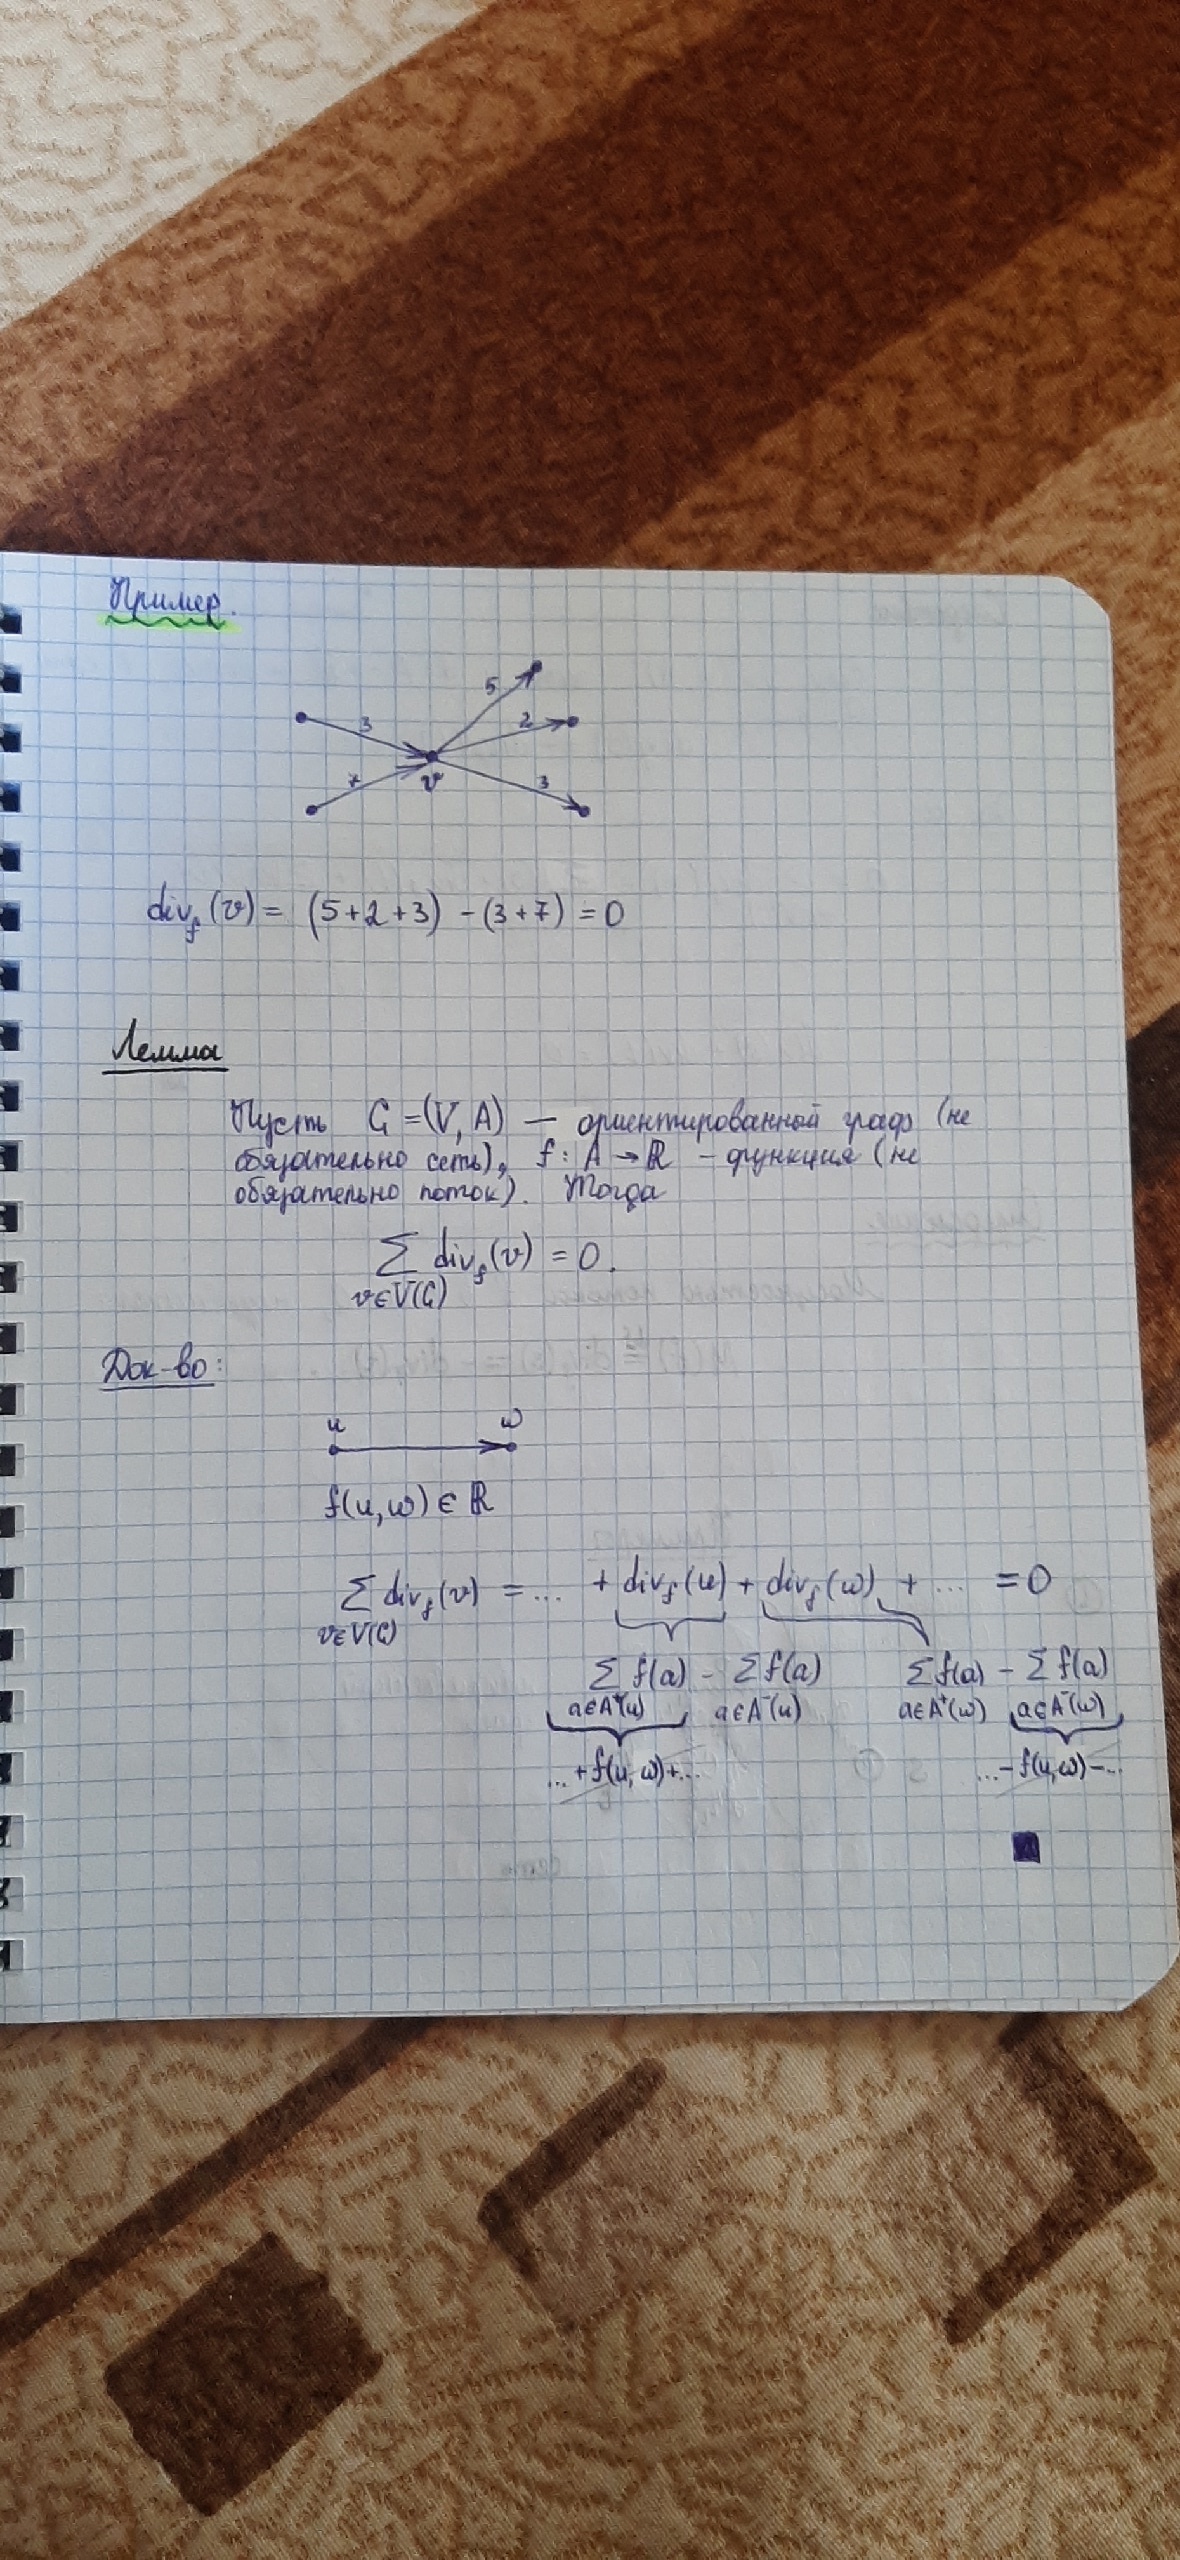 Пример.
5
3 2
7 v 3
div_f(v) = (5+2+3) - (3+7) = 0
Лемма
Пусть G = (V, A) — ориентированный граф (не
обязательно сеть), f: A → ℝ - функция (не
обязательно поток). Тогда
∑ div_f(v) = 0.
v∈V(G)
Док-во:
u w
f(u,w) ∈ ℝ
∑ div_f(v) = ... + div_f(u) + div_f(w) + ... = 0
v∈V(G)
∑ f(a) - ∑ f(a) ∑ f(a) - ∑ f(a)
a∈A⁺(u) a∈A⁻(u) a∈A⁺(w) a∈A⁻(w)
...+f(u,w)+... ...-f(u,w)-...